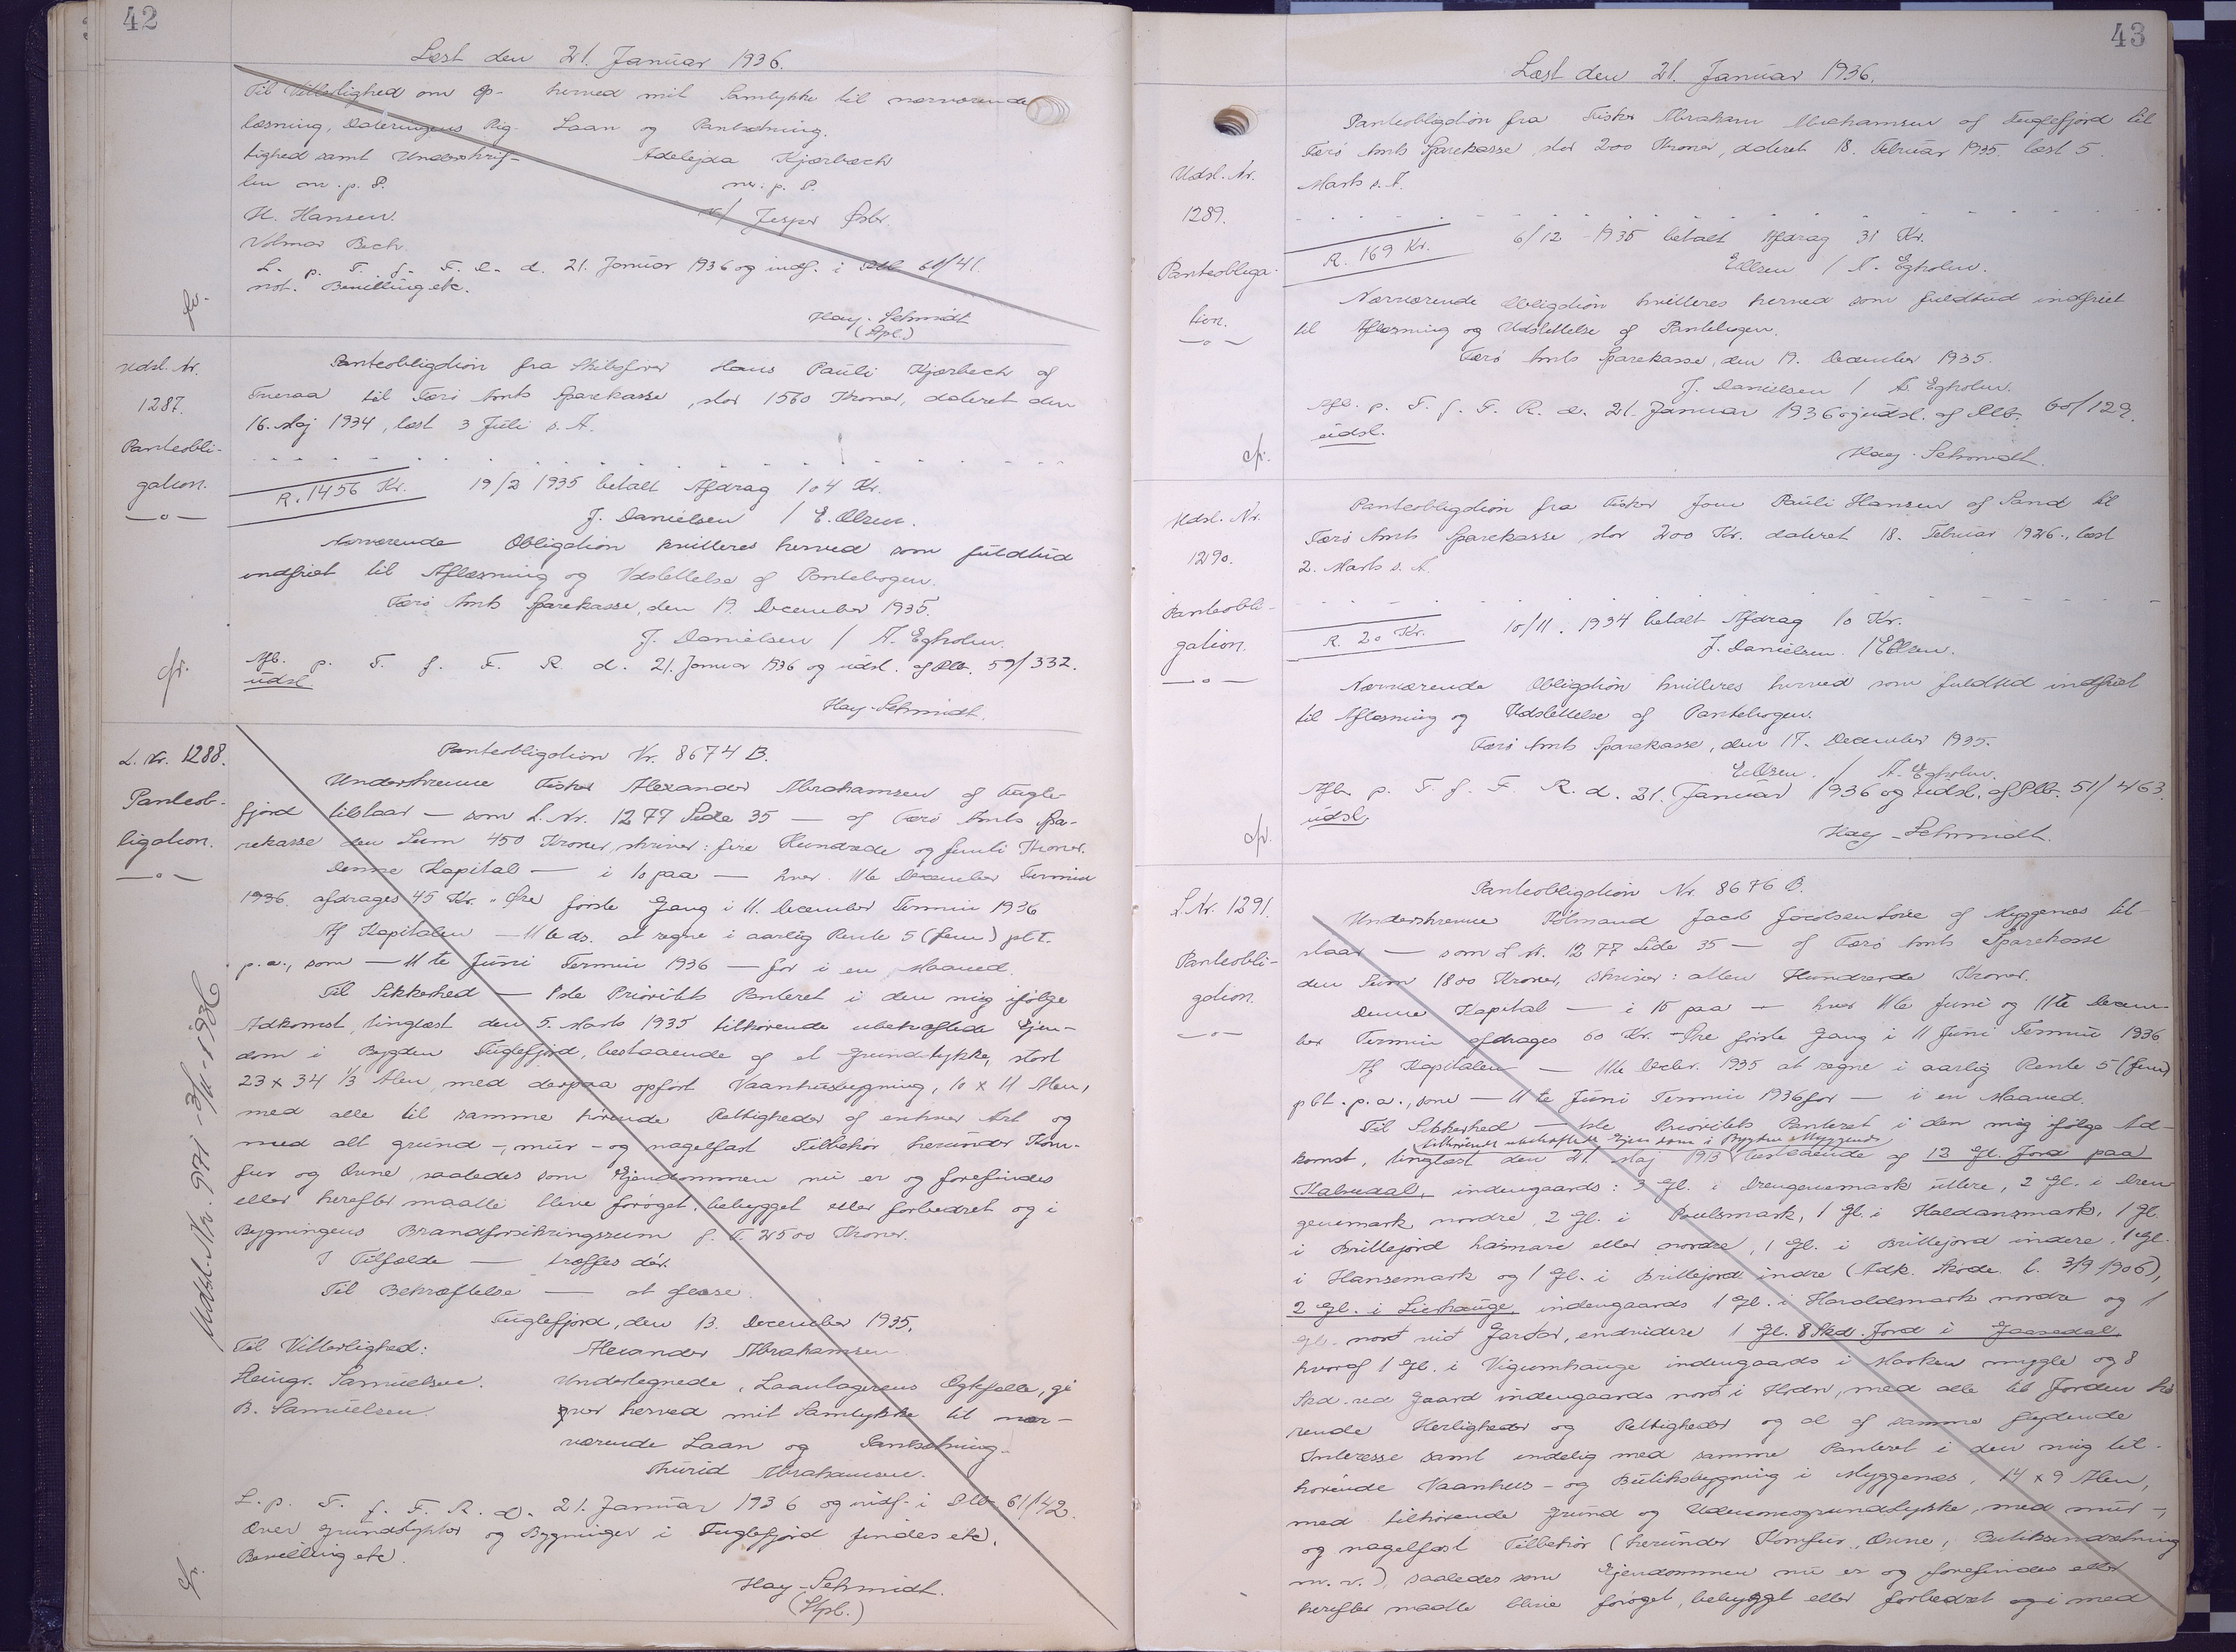 42
Læst den 21. Januar 1936.
Til Vitterlighed om Op- herved mit Samtykke til nærværende
læsning, Dateringens Rig- Laan og Pantsætning.
tighed samt Underskrif- Adelejda Kjærbech
ten m. p. P. m. p. P.
H. Hansen. v/ Jesper
Volmar Bech
L. p. T. f. F. R. d. 21. Januar 1936 og indf. i Ptb 61/41.
not. Bevilling etc.
Hay-Schmidt
(Spl.)
Udsl. Nr.
1287.
Panteobli-
gation.
Panteobligation fra Skibsfører Hans Pauli Kjærbech af
Fueraa til Færø Amts Sparekasse, stor 1560 Kroner, dateret den
16. Maj 1934, læst 3 Juli s. A.
R. 1456 Kr. 19/2 1935 betalt Afdrag 104 Kr.
J. Danielsen / E. Olsen.
Nærværende Obligation kvitteres herved som fuldtud
indfriet til Aflæsning og Udslettelse af Pantebogen.
Færø Amts Sparekasse, den 19. December 1935.
J. Danielsen / A. Egholm.
Afl. p. T. f. F. R. d. 21. Januar 1936 og udsl. af Ptb. 59/332.
udsl.
Hay-Schmidt.
L. Nr. 1288.
Panteob-
ligation.
Udsl. Nr. 971 - 3/11 - 1936
Panteobligation Nr. 8674 B.
Underskrevne Fisker Alexander Abrahamsen af Fugle-
fjord tilstaar — som L. Nr. 1277 Side 35 — af Færø Amts Spa-
rekasse den Sum 450 Kroner, skriver: fire Hundrede og femti Kroner.
Denne Kapital — i 10 paa — hver 11te December Termin
1936. afdrages 45 Kr. " Øre første Gang i 11. December Termin 1936
Af Kapitalen — 11te ds. at regne i aarlig Rente 5 (fem) pCt.
p.a., som — 11te Juni Termin 1936 — for i en Maaned.
Til Sikkerhed — 1ste Prioritets Panteret i den mig ifølge
Adkomst, tinglæst den 5. Marts 1935 tilhørende ubehæftede Ejen-
dom i Bygden Fuglefjord, bestaaende af et Grundstykke, stort
23 x 34 1/3 Alen, med derpaa opført Vaaningsbygning, 10 x 11 Alen,
med alle til samme hørende Rettigheder af enhver Art og
med alt grund-, mur- og nagelfast Tilbehør herunder Kom-
fur og Ovne, saaledes som Ejendommen nu er og forefindes
eller herefter maatte blive forøget, bebygget eller forbedret og i
Bygningens Brandforsikringssum f. T. 2500 Kroner.
I Tilfælde — træffes dér.
Til Bekræftelse — at gøre.
Fuglefjord, den 13. December 1935.
Til Vitterlighed: Alexander Abrahamsen
Heingr. Samuelsen. Undertegnede, Laantagerens Ægtefælle, gi
B. Samuelsen. ver herved mit Samtykke til nær-
værende Laan og Pantsætning.
Thurid Abrahamsen.
L. p. T. f. F. R. d. 21. Januar 1936 og indf. i Ptb 61/42.
Over Grundstykker og Bygninger i Fuglefjord findes etc.
Bevilling etc.
Hay-Schmidt.
(Spl.)
43
Læst den 21. Januar 1936.
Udsl. Nr.
1289.
Panteobliga-
tion.
Panteobligation fra Fisker Abraham Abrahamsen af Fuglefjord til
Færø Amts Sparekasse, stor 200 Kroner, dateret 18. Februar 1935. læst 5.
Marts s. A.
R. 169 Kr. 6/12 - 1935 betalt Afdrag 31 Kr.
EOlsen / A. Egholm.
Nærværende Obligation kvitteres herved som fuldtud indfriet
til Aflæsning og Udslettelse af Pantebogen.
Færø Amts Sparekasse, den 19. December 1935.
J. Danielsen / A. Egholm.
Afl. p. T. f. F. R. d. 21. Januar 1936 og udsl. af Ptb. 60/129.
udsl.
Hay-Schmidt.
Udsl. Nr.
1290.
Panteobli-
gation.
Panteobligation fra Fisker Joen Pauli Hansen af Sand til
Færø Amts Sparekasse, stor 200 Kr. dateret 18. Februar 1926., læst
2. Marts s. A.
R. 20 Kr. 10/11. 1934 betalt Afdrag 10 Kr.
J. Danielsen. / EOlsen.
Nærværende Obligation kvitteres herved som fuldtud indfriet
til Aflæsning og Udslettelse af Pantebogen.
Færø Amts Sparekasse, den 17. December 1935.
EOlsen. / A. Egholm.
Afl. p. T. f. F. R. d. 21. Januar 1936 og udsl. af Ptb. 51/463.
udsl.
Hay-Schmidt.
L Nr. 1291.
Panteobli-
gation.
Panteobligation Nr. 8676 B.
Underskrevne Købmand Jacob Jacobsen af Myggenæs til-
staar — som L Nr. 1277 Side 35 — af Færø Amts Sparekasse
den Sum 1800 Kroner, skriver: atten Hundrede Kroner.
Denne Kapital — i 15 paa — hver 11te Juni og 11te Decem-
ber Termin afdrages 60 Kr. - Øre første Gang i 11 Juni Termin 1936
Af Kapitalen — 11te Decbr. 1935 at regne i aarlig Rente 5 (fem)
pCt. p. a., som — 11te Juni Termin 1936 for — i en Maaned.
Til Sikkerhed — 1ste Prioritets Panteret i den mig ifølge Ad-
tilhørende ubehæftede Ejendom i Bygden Myggenæs
komst, tinglæst den 21. Maj 1913 bestaaende af 13 Gl. Jord paa
Kalvedal, indengaards: 3 Gl. i Drengenemark ittere, 2 Gl. i Dren
genemark nordre, 2 Gl. i Poulsmark, 1 Gl. i Haldansmark, 1 Gl
i Brittejord haimare eller nordre, 1 Gl. i Brittejord indere, 1 Gl.
i Hansemark og 1 Gl. i Brittejord indre (Adk. Skøde t. 3/9 1906),
2 Gl. i Lieshauge, indengaards 1 Gl. i Haroldsmark nordre og 1
Gl. nord vid Gardar, endvidere 1 Gl. 8 Skd. Jord i Gaasedal,
hvoraf 1 Gl. i Vigumhauge indengaards i Marken mygle og 8
Skd. ved Gaard indengaards nord i Hodn, med alle til Jorden hø
rende Herligheder og Rettigheder og al af samme flydende
Interesse samt endelig med samme Panteret i den mig til-
hørende Vaanhus- og Butiksbygning i Myggenæs, 14 x 9 Alen,
med tilhørende Grund og Udenomsgrundstykke, med mur-,
og nagelfast Tilbehør (herunder Komfur, Ovne, Butiksindretning
m. v.), saaledes som Ejendommen nu er og forefindes eller
herefter maatte blive forøget, bebygget eller forbedret og i med